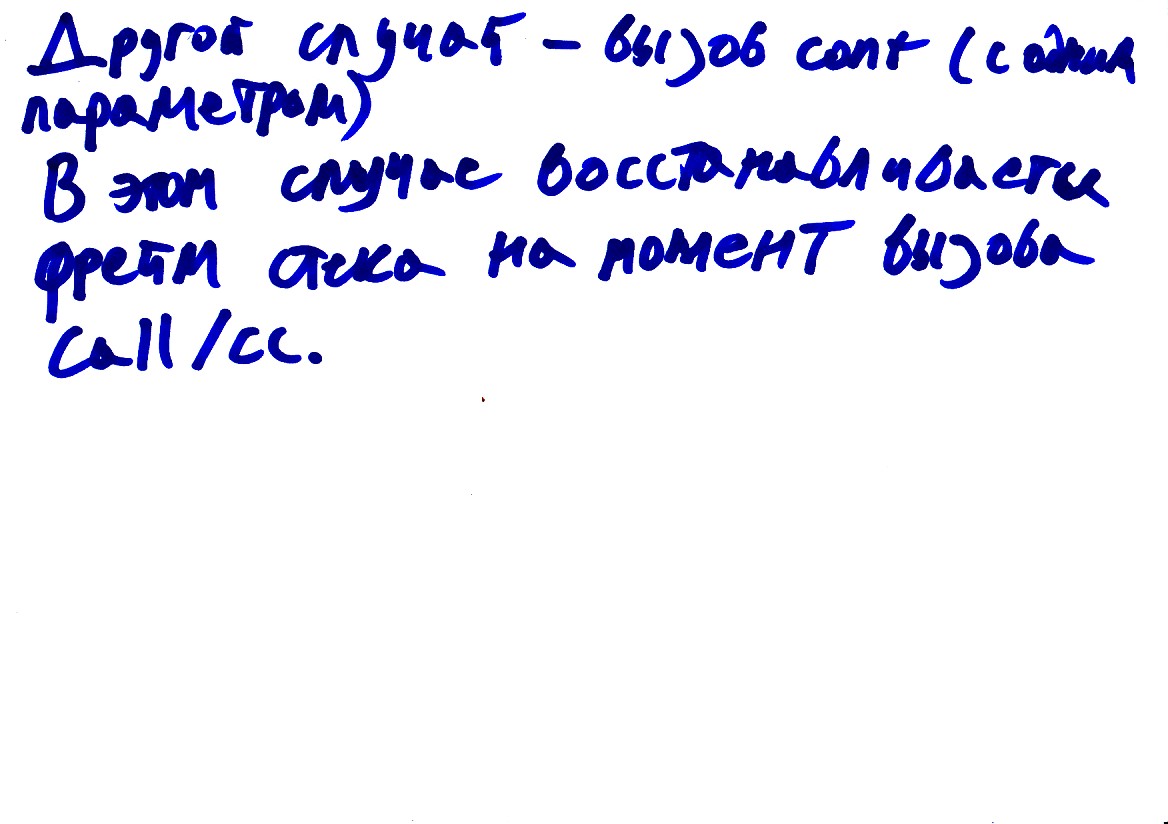 Другой случай – вызов cont (с одним
параметром)
В этом случае восстанавливается
фрейм стека на момент вызова
call/cc.